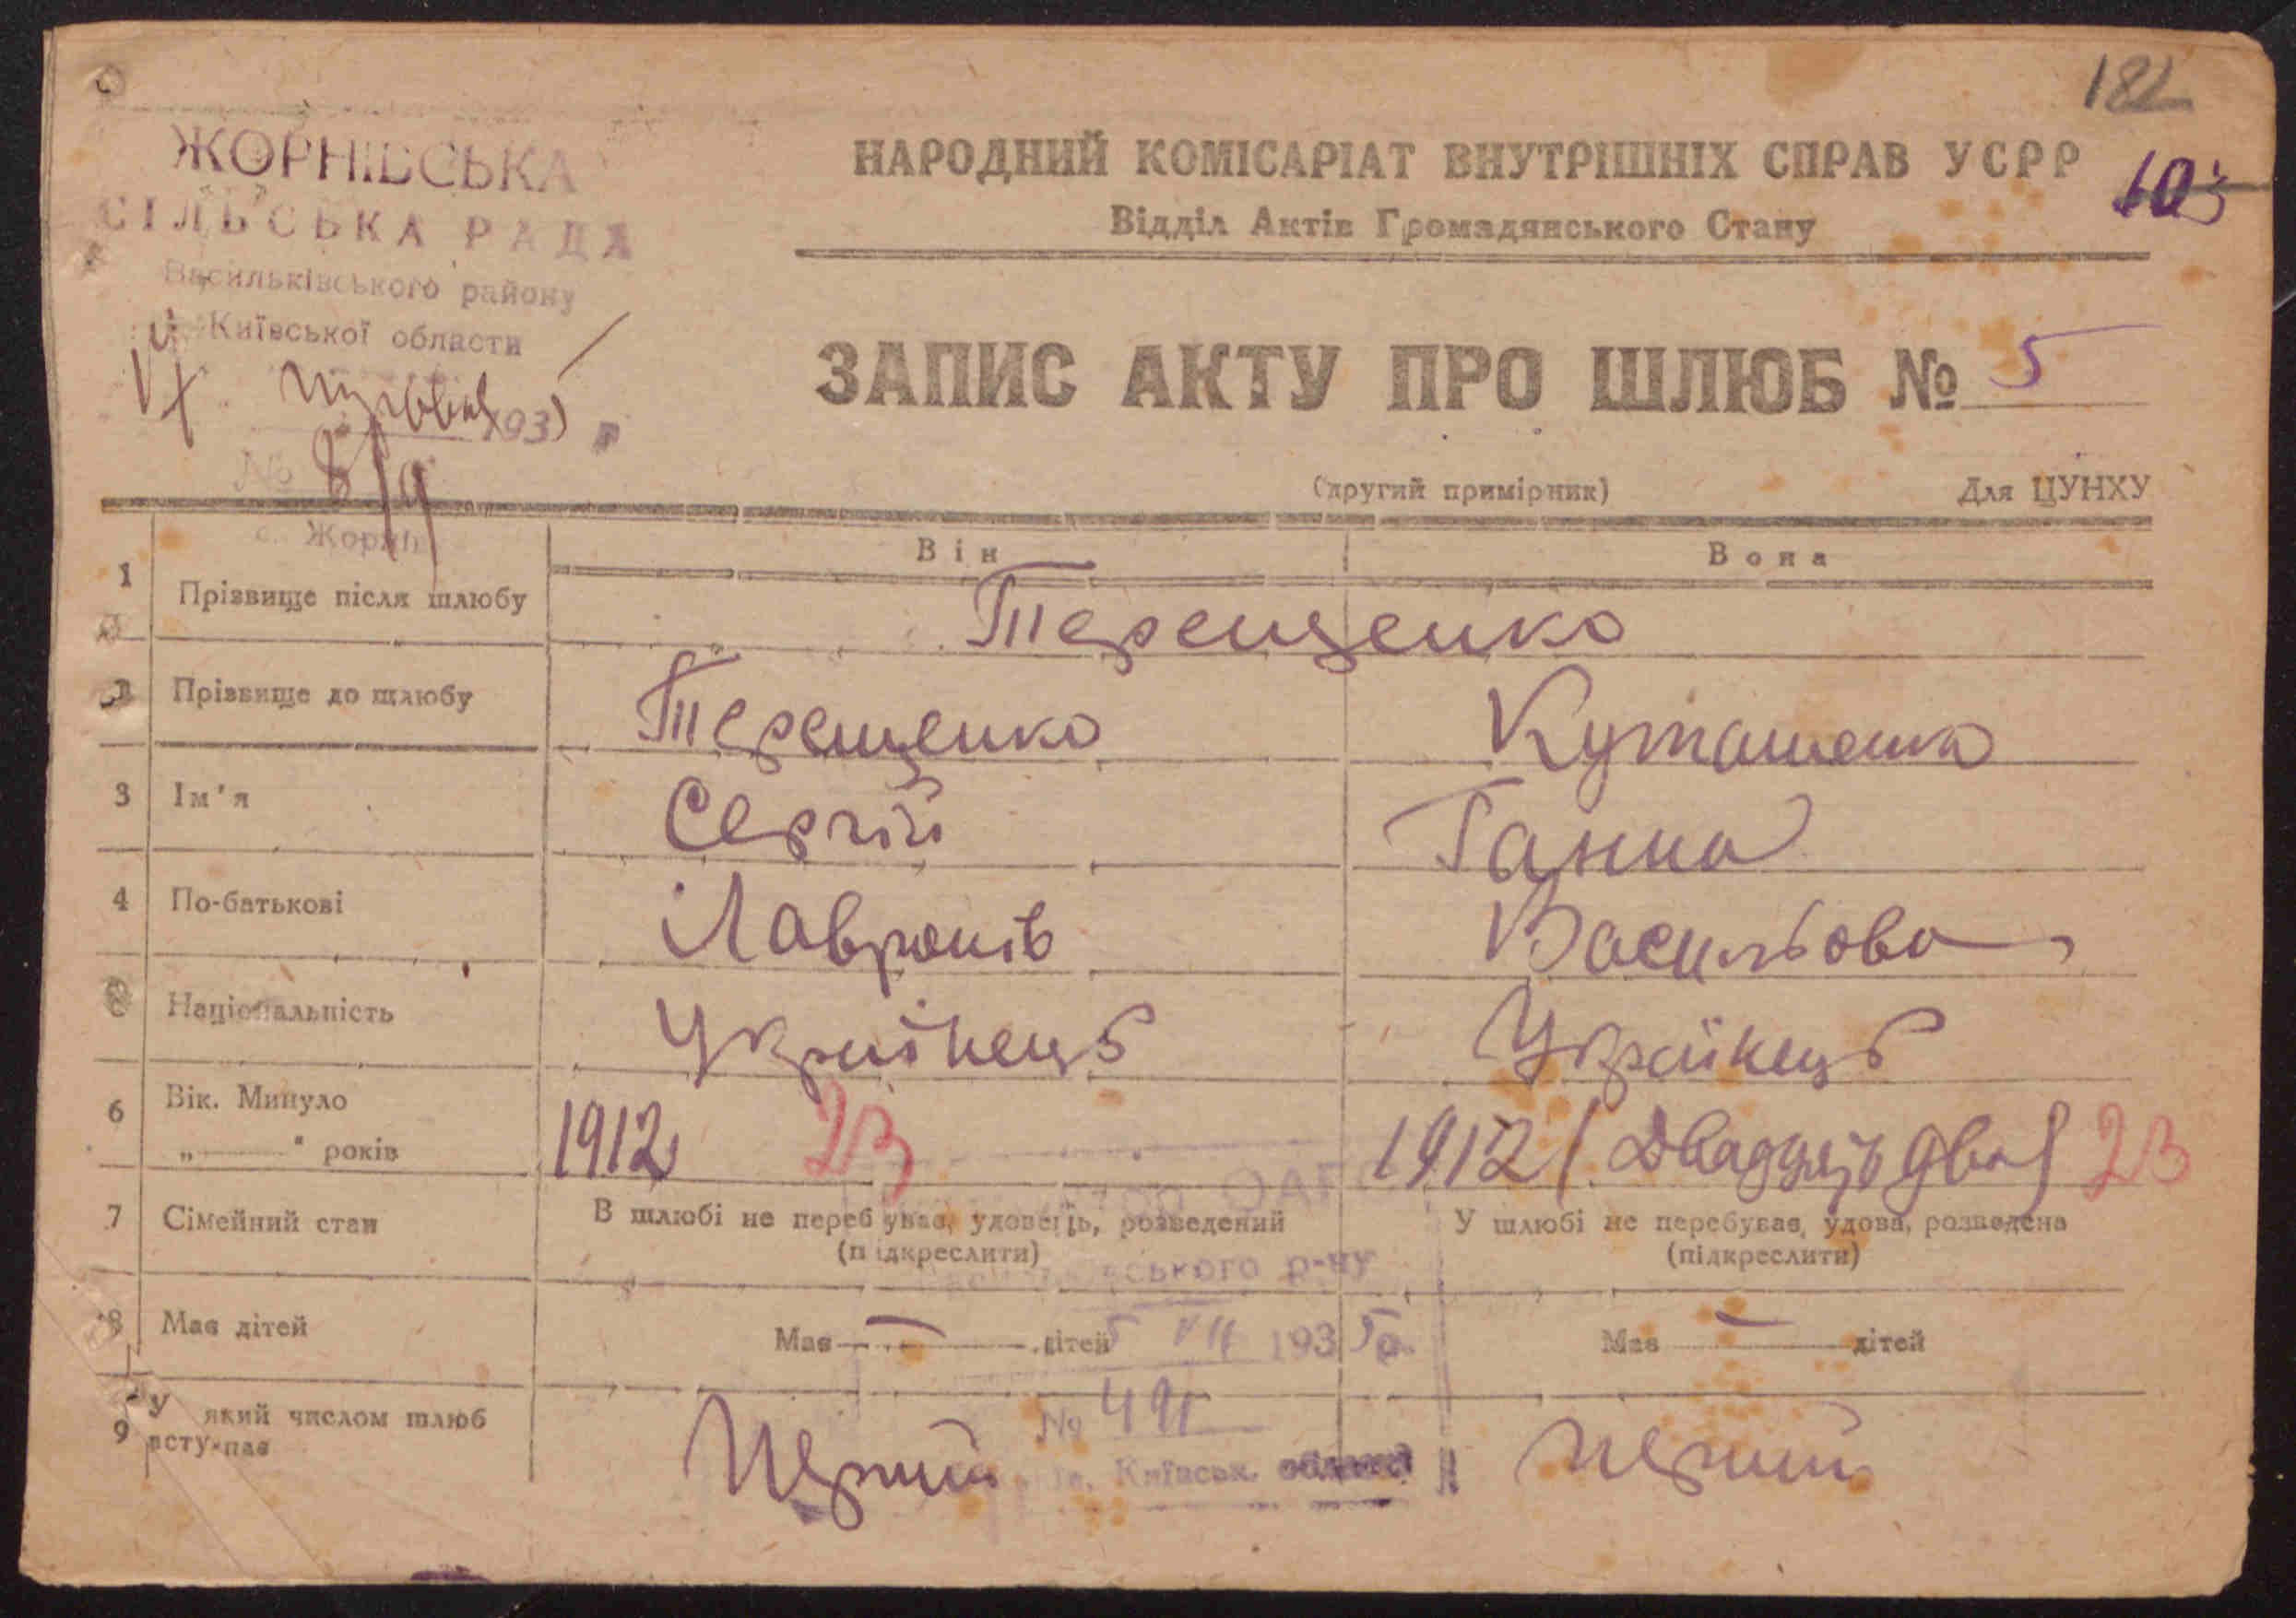 182
ЖОРНІВСЬКА
СІЛЬСЬКА РАДА
Васильківського району
Київської области
193 р
№
с. Жорн
НАРОДНИЙ КОМІСАРІАТ ВНУТРІШНІХ СПРАВ УСРР
103
Відділ Актів Громадянського Стану
ЗАПИС АКТУ ПРО ШЛЮБ № 5
(другий примірник) Для ЦУНХУ
Він Вона
1 Прізвище після шлюбу Терещенко
2 Прізвище до шлюбу Терещенко
3 Ім'я Сергій Ганна
4 По-батькові Лавронів Васильова
Національність Українець Українець
6 Вік. Минуло
„——" років 1912 23 1912 (Двадцять два) 23
7 Сімейний стан В шлюбі не перебуває, удовець, розведений У шлюбі не перебуває, удова, розведена
(підкреслити) (підкреслити)
ського р-ну
8 Має дітей Має — дітей Має — дітей
5 VII 1935 р.
№ 491
9 У який числом шлюб
вступає Перший Перший
Київськ. області